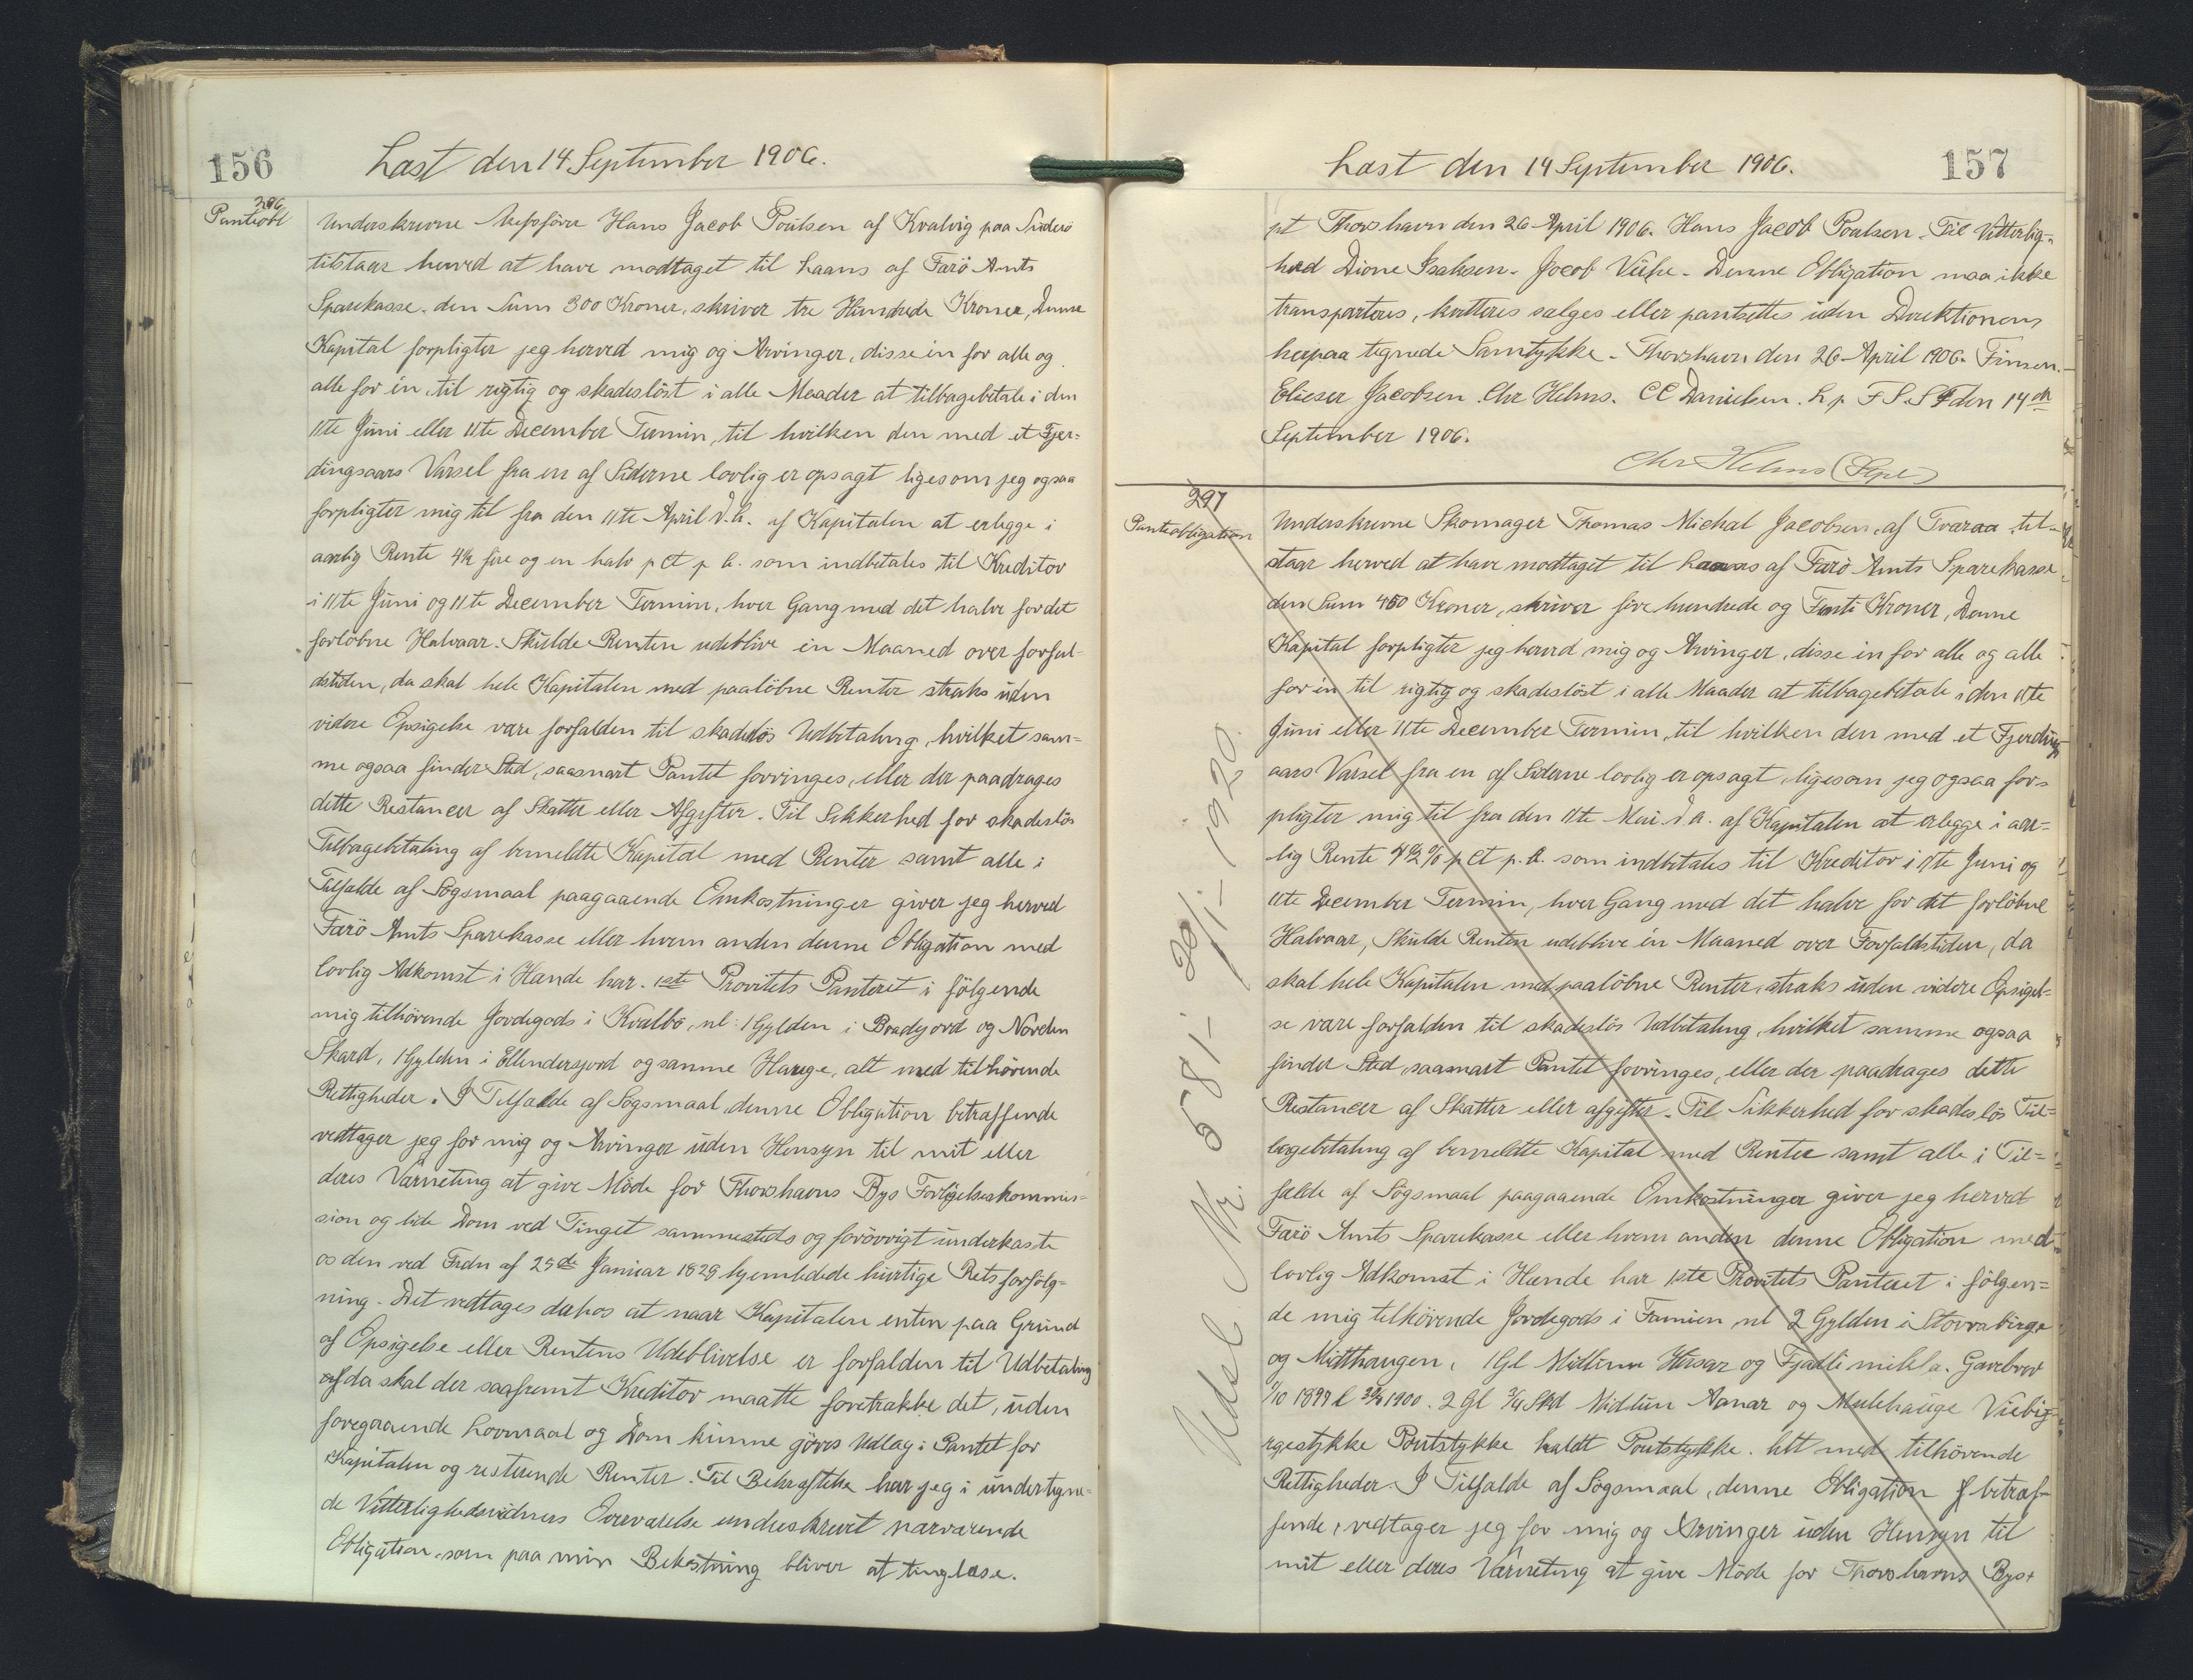 156
Læst den 14 September 1906.
296
Panteobl
Underskrevne Skipsförer Hans Jacob Poulsen af Kvalvig paa Suderö
tilstaar herved at have modtaget til Laans af Færö Amts
Sparekasse. den Sum 300 Kroner, skriver tre Hundrede Kroner, Denne
Kapital forpligter jeg herved mig og Arvinger, disse en for alle og
alle for én, til rigtig og skadeslöst i alle Maader at tilbagebetale i den
11te Juni eller 11te December Termin, til hvilken den med et Fjer-
dingsaars Varsel fra en af Siderne lovlig er opsagt ligesom jeg ogsaa
forpligter mig til fra den 11te April d.A. af Kapitalen at erlegge i
aarlig Rente 4½ fire og en halv p Ct p A. som indbetales til Kreditor
i 11te Juni og 11te December Termin, hver Gang med det halve for det
forlöbne Halvaar. Skulde Renten udeblive én Maaned over forfal-
dstiden, da skal hele Kapitalen med paalöbne Renter straks uden
videre Opsigelse være forfalden til skadeslös Udbetaling, hvilket sam-
me ogsaa finder Sted, saasnart Pantet forringes, eller der paadrages
dette Restancer af Skatter eller Afgifter. Til Sikkerhed for skadeslös
Tilbagebetaling af bemeldte Kapital med Renter samt alle i
Tilfælde af Sögsmaal paagaaende Omkostninger giver jeg herved
Færö Amts Sparekasse eller hvem anden denne Obligation med
lovlig Adkomst i Hænde har. 1ste Prioritets Panteret i fölgende
mig tilhörende Jordegods i Kvalbö, nl: 1 Gylden i Bradgjord og Norden
Skard, 1 Gylden i Ellendersjord og samme Hauge, alt med tilhörende
Rettigheder. I Tilfælde af Sögsmaal denne Obligation betræffende
vedtager jeg for mig og Arvinger uden Hensyn til mit eller
deres Værneting at give Möde for Thorshavns Bys Forligelseskommis-
sion og lide Dom ved Tinget sammesteds og forövrigt underkaste
os den ved Frdn af 25de Januar 1828 hjemlede hurtige Retsforfölg-
ning. Det vedtages derhos at naar Kapitalen enten paa Grund
af Opsigelse eller Rentens Udeblivelse er forfalden til Udbetaling
da skal der saafremt Kreditor maatte foretrække det, uden
foregaaende Lovmaal og Dom kunne göres Udlæg i Pantet for
Kapitalen og resterende Renter. Til Bekræftelse har jeg i undertegne-
de Vitterlighedsvidners Overværelse underskrevet nærværende
Obligation. som paa min Bekostning bliver at tinglæse.
Læst den 14 September 1906.
157
pt Thorshavn den 26 April 1906. Hans Jacob Poulsen. Til Vitterlig-
hed Dione Isaksen. Jocob Viihe. Denne Obligation maa ikke
transporteres, kvitteres sælges eller pantsættes uden Direktionens
herpaa tegnede Samtykke. Thorshavn den 26 April 1906. Finsen.
Elieser Jacobsen. Chr Helms. CC Danielsen. L p F S. S T den 14de
September 1906.
Chr Helms
297
Panteobligation
Underskrevne Skomager Thomas Michal Jacobsen, af Tværaa til-
staar herved at have modtaget til Laans af Færö Amts Sparekasse
den Sum 450 Kroner, skriver fire hundrede og Femti Kroner, Denne
Kapital forpligter jeg herved mig og Arvinger, disse én for alle og alle
for én til rigtig og skadeslöst i alle Maader at tilbagebetale i den 11te
Juni eller 11te December Termin, til hvilken den med et Fjerdings
aars Varsel fra en af Siderne lovlig er opsagt, ligesom jeg ogsaa for-
pligter mig til fra den 11te Mai d A. af Kapitalen at erlegge i aar-
lig Rente 4½ % p Ct p. A. som indbetales til Kreditor i 11te Juni og
11te December Termin, hver Gang med det halve for det forlöbne
Halvaar, Skulde Renten udeblive én Maaned over Forfaldstiden, da
skal hele Kapitalen med paalöbne Renter, straks uden videre Opsigel-
se være forfalden til skadeslös Udbetaling, hvilket samme ogsaa
finder Sted, saasnart Pantet forringes, eller der paadrages dette
Restancer af Skatter eller afgifter. Til Sikkerhed for skadeslös Til-
bagebetaling af bemeldte Kapital med Renter samt alle i Til-
fælde af Sögsmaal paagaaende Omkostninger giver jeg herved
Færö Amts Sparekasse eller hvem anden denne Obligation med
lovlig Adkomst i Hænde har 1ste Prioritets Panteret i fölgen-
de mig tilhörende Jordegods i Famien nl 2 Gylden i Storrabirge
og Mitthaugen, 1 Gl Midlum Hirsar og Fjadli mikla. Gavebrev
1/10 1897 l 1900. 2 Gl ¾ Skd Midlun Aanar og Mulehauge Viebig-
rgestykke Poutstykke kaldt Poutstykke. Alt med tilhörende
Rettigheder. I Tilfælde af Sögsmaal, denne Obligation betræf-
fende, vedtager jeg for mig og Arvinger uden Hensyn til
mit eller deres Værneting at give Möde for Thorshavns Bys
Udsl Nr. 581- 20/1- 1920.